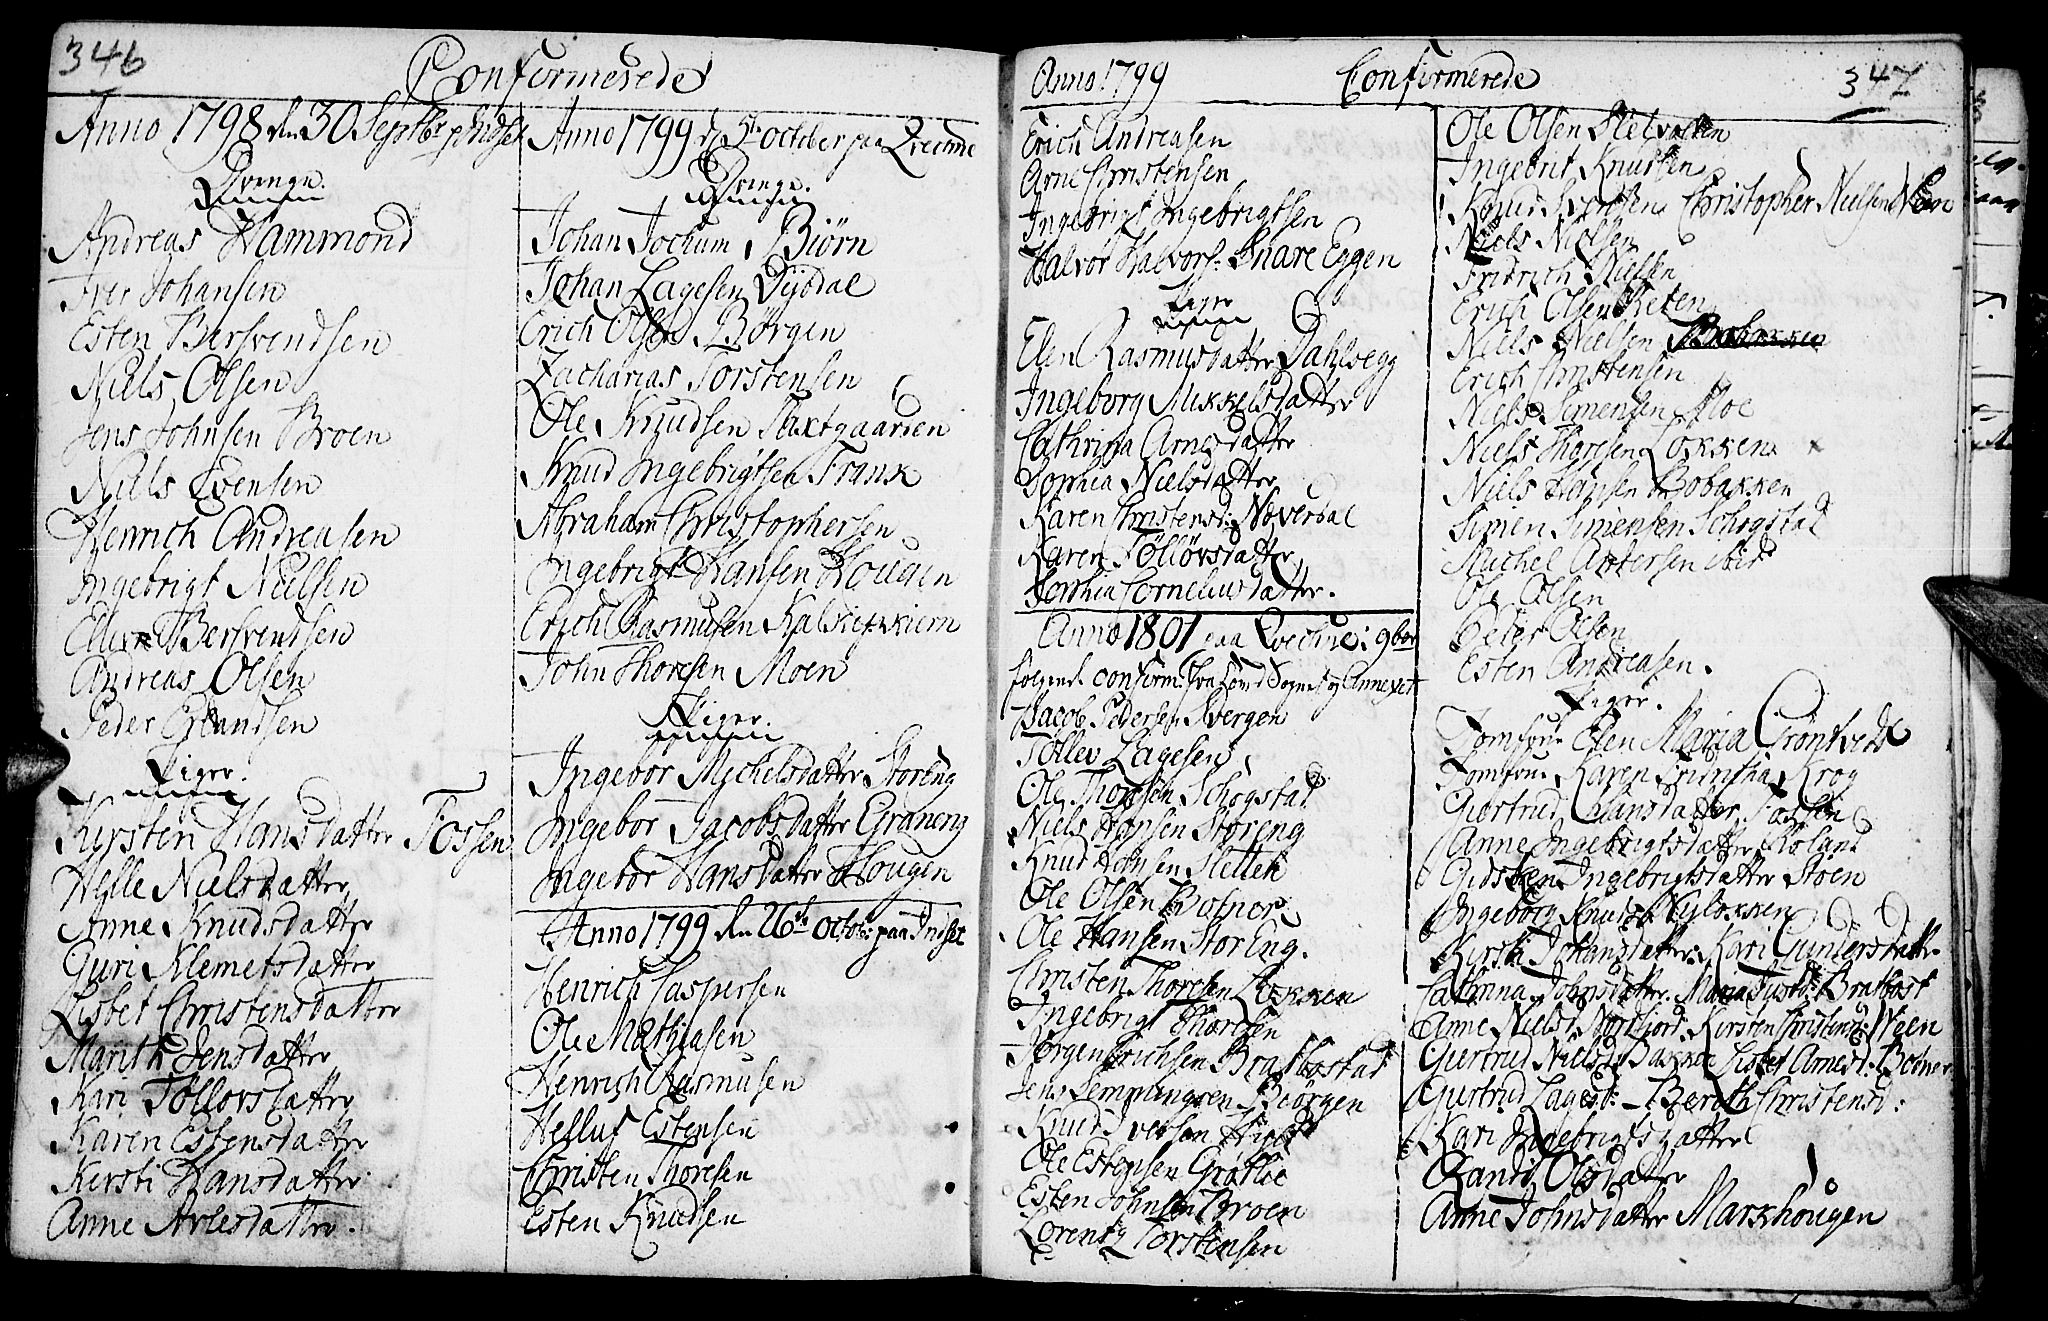 346
Confirmerede
Anno 1798 den 30 Septbr p Indset
Drenge.
Andreas Hammond
Iver Johansen
Esten Bersvendsen
Niels Olsen
Jens Johnsen Broen
Niels Svensen
Henrich Andreasen
Ingebrigt Nielsen
Bersvendsen
Andreas Olsen
Peder Erlandsen
Piger.
Kirsten Hansdatter Fossen
Helle Nielsdatter
Anne Knudsdatter
Guri Klemetsdatter
Lisbet Christensdatter
Marith Jensdatter
Kari Töllovsdatter
Karen Estensdatter
Kersti Hansdatter
Anne Arnesdatter.
Anno 1799 d 5te october paa Qveckne
Drenge.
Johan Jochum Biörn
Johan Lagesen Dijbdal
Erich Olsen Börgen
Zacharias Torstensen
Ole Knudsen
Knud Ingebrigtsen Frank
Abraham Christophersen
Ingebrigt Hansen Hougen
Erich Rasmusen
John Thoresen Moen
Piger.
Ingebor Michelsdatter Storeng
Ingebor Jacobsdatter Graneng
Ingebor Hansdatter Hougen
Anno 1799 den 26de octob: paa Indset
Henrich Caspersen
Ole Mathiasen
Henrich Rasmusen
Helluf Estensen
Christen Thoresen
Esten Knudsen
Anno 1799
Confirmerede
347
Erich Andreasen
Arne Christensen
Ingebrigt Ingebrigtsen
Halvor Halvors: Snare Eggen
Piger
Elen Rasmusdatter Dahlsegg
Ingeborg Mikkelsdatter
Cathrina Arnesdatter
Sophia Nielsdatter
Karen Christensd: Næverdal
Karen Töllövsdatter
Sophia Corneliusdatter.
Anno 1801 paa Qveckne i 9ber
følgende confirm: fra Hoved Sognet og Annexet
Jacob Pedersen
Tollev Lagesen
Ole Thoresen Schogstad
Niels Hansen Storeng
Knud Hansen Sletten
Ole Olsen
Ole Hansen StorEng.
Christen Thoresen Løkken
Ingebrigt Thoresen
Jørgen Erichsen Bratbostad
Jens Lemmingven Biörgen
Knud Iversen
Ole Estensen Grøtlie
Esten Johnsen Broen
Lorentz Torstensen
Ole Olsen Stelbakken
Ingebrit Knudsen
Knud Svensen Christopher Nielsen Ween
Niels Nielsen
Fridrich Nielsen
Erich Olsen
Niels Nielsen Bobakken
Erich Christensen
Niels Simensen Moe
Niels Thoresen Løkken
Niels Hansen Bobakken
Simen Simensen Schogstad
Michel
Ole Olsen
Peder Olsen
Esten Andreasen.
Piger.
Jomfrue Elen Maria Gröntvedt
Jomfrue Karen Krog
Giertrud Hansdatter Fossen
Anne Ingebrigtsdatter
Gidsken Ingebrigtsdatter Stoen
Ingeborg Knudsd Nyløkken
Kirsti Johansdatter. Kari Gundersdatter
Cathrina Johnsdatter. Maria Bratbost
Anne Nielsd. Nordfiord. Kirsten Christensd: Ween
Giertrud Nielsd Bakken Lisbet Arnesd: Botner
Giertrud Lagesd: Berith Christensd:
Kari Ingebrigtsdatter
Randi Olsdatter
Anne Johnsdatter Markhougen